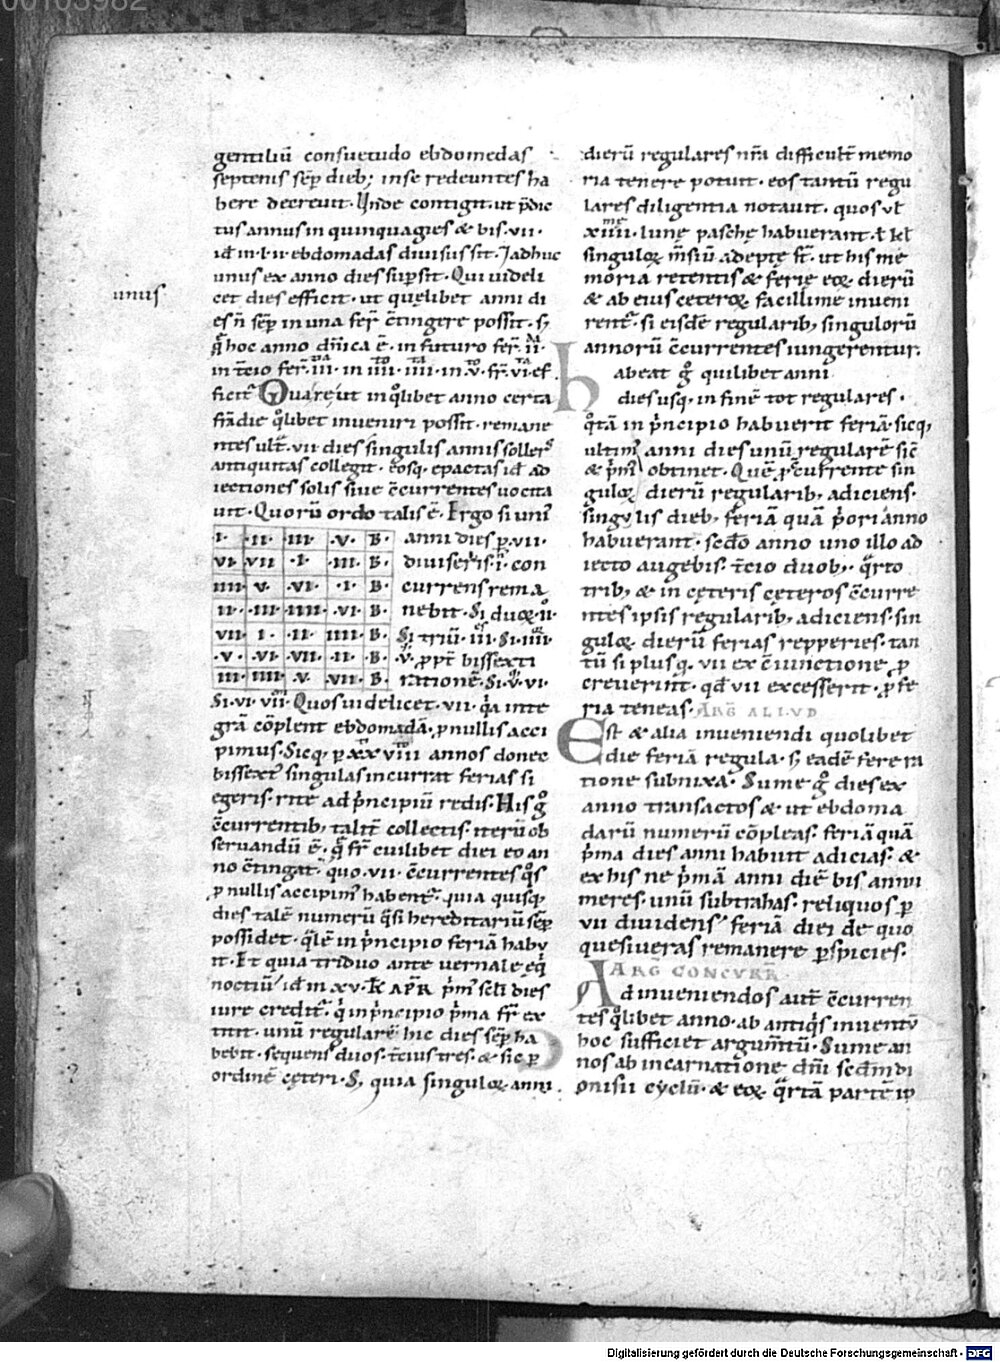 00103982
gentiliũ consuetudo ebdomedas
septenis sẽp dieb; inse redeuntes ha
bere decreuit. Unde contigit. ut p̄dic
tus annus in quinquagies & bis. vii.
id ̄ in. l. ii. ebdomadas diuisus sit. Jadhuc
unus ex anno dies sup̄sit. Qui uideli
cet dies efficit. ut quęlibet anni di
unus
es n̄ sẽp in una fer̄ c̄tingere possit. s;
q̄ hoc anno dn̄ica ē. in futuro fer̄. ii.
in t̄cio fer̄. iii. in iiii. iiii. in. v. fr̄. vi. ef
ficit̄ Quare ut in q̊libet anno certa
fr̄a die q̊libet inueniri possit. remane
ntes ult̄. vii. dies singulis annis soller̄
antiquitas collegit. eosq. epactas id ̄ ad
iectiones solis siue c̄currentes uocita
uit. Quorũ ordo talis ē. Ergo si uni᾽
I. II. III. V. B.
VI. VII. I. III. B.
IIII. V. VI. I. B.
II. III. IIII. VI. B.
VII. I. II. IIII. B.
V. VI. VII. II. B.
III. IIII. V. VII. B.
anni dies p̱. vii.
diuiseris. i. con
currens rema
nebit. Si duoꝝ. ii.
Si triũ. iii. Si. iiii.
v. ꝓpt̄ bissexti
rationē. Si. v. vi.
Si. vi. vii. Quos uidelicet. vii. q̄a inte
grā cōplent ebdomadā. ꝓ nullis acci
pimus. Sicq; p̱ xx viii annos donec
bissext᾽ singulas incurrat ferias si
egeris. rite ad p̄ncipiũ redis. His g̊
c̄currentib; talit̄ collectis. iterũ ob
seruandũ ē. q̄ fr̄ cuilibet diei eo an
no c̄tingat. quo. vii. c̄currentes q̊s
ꝓ nullis accipim᾽ habent̄. quia quisq;
dies talē numerũ q̊si hereditariũ sẽp
possidet. q̊lē in p̄ncipio feriā habu
it. Et quia triduo ante uernale eq̄
noctiũ. id ̄ in xv. kł APR̄. p̄m᾽ sc̄li dies
iure credit̄. q̊ in p̄ncipio p̄ma fr̄ ex
titit. unũ regularē hic dies sẽp ha
bebit. sequens duos. t̄cius tres. & sic p̱
ordinē cęteri. S; quia singuloꝝ anni
dierũ regulares nr̄a difficult̄ memo
ria tenere potuit. eos tantũ regu
lares diligentia notauit. quos uł
xiiii. lunę paschę habuerant. ł kł
singuloꝝ m̄siũ adeptę st̄. ut his me
moria retentis & ferię eoꝝ dierũ
& ab eius ceteroꝝ facillime inueni
rent̄. si eisdē regularib; singulorũ
annorũ c̄currentes iungerentur.
habeat g̊ quilibet anni
dies usq; in finē tot regulares.
q̊tā in p̄ncipio habuerit feriā. sicq;
ultim᾽ anni dies unũ regularē sic
& p̄m᾽ obtinet. Quē ꝓ c̄currente sin
guloꝝ dierũ regularib; adiciens.
singulis dieb; feriā quā p̄ori anno
habuerant. scd̄o anno uno illo ad
iecto augebis. t̄cio duob;. q̊rto
trib; & in cęteris cęteros c̄curre
ntes ipsis regularib; adiciens. sin
guloꝝ dierũ ferias repperies. tan
tũ si plus q̄. vii ex c̄iunctione ꝓ
creuerint. qd̄ vii excesserit. ꝓ fe
ria teneas. ARḠ ALIVD
Est & alia inueniendi quolibet
die feriā regula. s; eadē fere ra
tione subnixa. Sume g̊ dies ex
anno transactos & ut ebdoma
darũ numerũ cōpleas. feriā quā
p̄ma dies anni habuit adicias. &
ex his ne p̄mā anni diē bis annu
meres. unũ subtrahas. reliquos p̱
vii diuidens feriā diei de quo
quesiueras remanere p̱spicies.
ARḠ CONCVRR̄
Ad inueniendos aut̄ c̄curren
tes q̊libet anno. ab antiq̊s inuentũ
hoc sufficiet argum̄tũ. Sume an
nos ab incarnatione dn̄i scd̄m di
onisii cyclũ. & eoꝝ q̊rtā partē ip
Digitalisierung gefördert durch die Deutsche Forschungsgemeinschaft - DFG